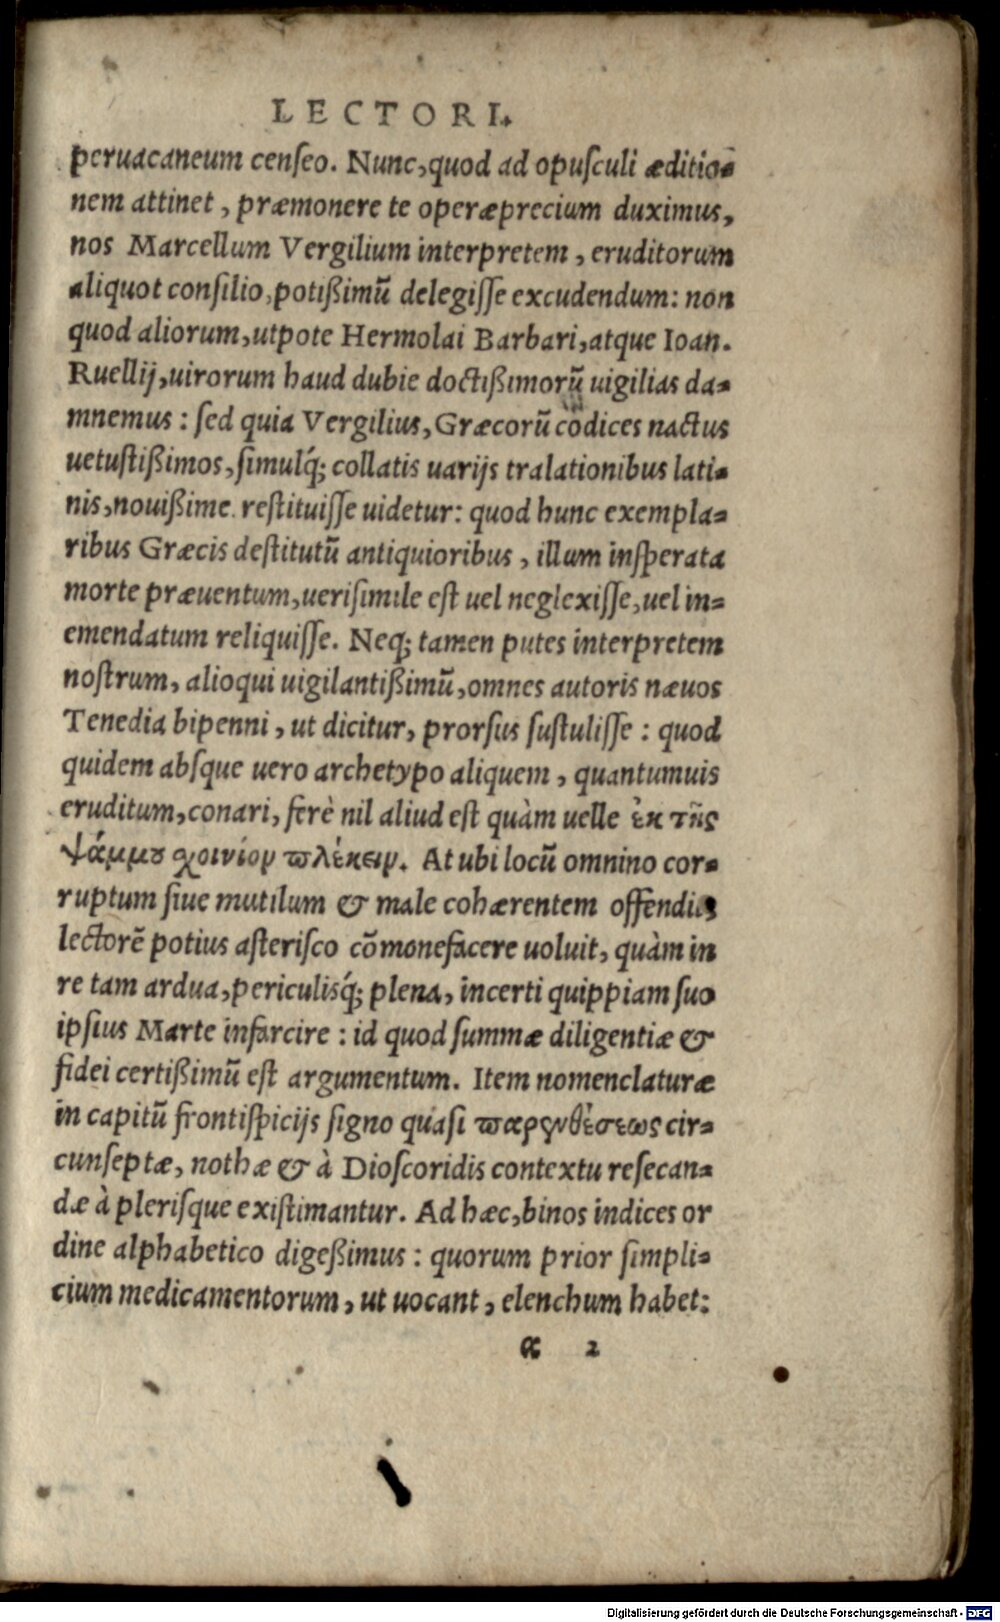 LECTORI.
peruacaneum censeo. Nunc, quod ad opusculi æditio-
nem attinet, præmonere te operæprecium duximus,
nos Marcellum Vergilium interpretem, eruditorum
aliquot consilio, potißimũ delegisse excudendum: non
quod aliorum, utpote Hermolai Barbari, atque Ioan.
Ruellij, uirorum haud dubie doctißimorũ uigilias da-
mnemus: sed quia Vergilius, Græcorũ codices nactus
uetustißimos, simulq́; collatis uarijs tralationibus lati-
nis, nouißime restituisse uidetur: quod hunc exempla-
ribus Græcis destitutũ antiquioribus, illum insperata
morte præuentum, uerisimile est uel neglexisse, uel in-
emendatum reliquisse. Neq; tamen putes interpretem
nostrum, alioqui uigilantißimũ, omnes autoris næuos
Tenedia bipenni, ut dicitur, prorsus sustulisse: quod
quidem absque uero archetypo aliquem, quantumuis
eruditum, conari, ferè nil aliud est quàm uelle ἐκ τῆς
ψάμμου χοινίον πλέκειν. At ubi locũ omnino cor-
ruptum siue mutilum & male cohærentem offendit
lectorẽ potius asterisco cõmonefacere uoluit, quàm in
re tam ardua, periculisq́; plena, incerti quippiam suo
ipsius Marte infarcire: id quod summæ diligentiæ &
fidei certißimũ est argumentum. Item nomenclaturæ
in capitũ frontispicijs signo quasi παρενθέσεως cir-
cunseptæ, nothæ & à Dioscoridis contextu resecan-
dæ à plerisque existimantur. Ad hæc, binos indices or
dine alphabetico digeßimus: quorum prior simpli-
cium medicamentorum, ut uocant, elenchum habet:
α 2
Digitalisierung gefördert durch die Deutsche Forschungsgemeinschaft - DFG